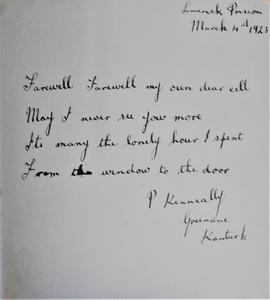 Limerick Prison
March 4th 1923
Farewell Farewell my own dear cell
May I never see you more
Its many the lonely hour I spent
From the window to the door
P Kenneally
Greenane
Kanturk